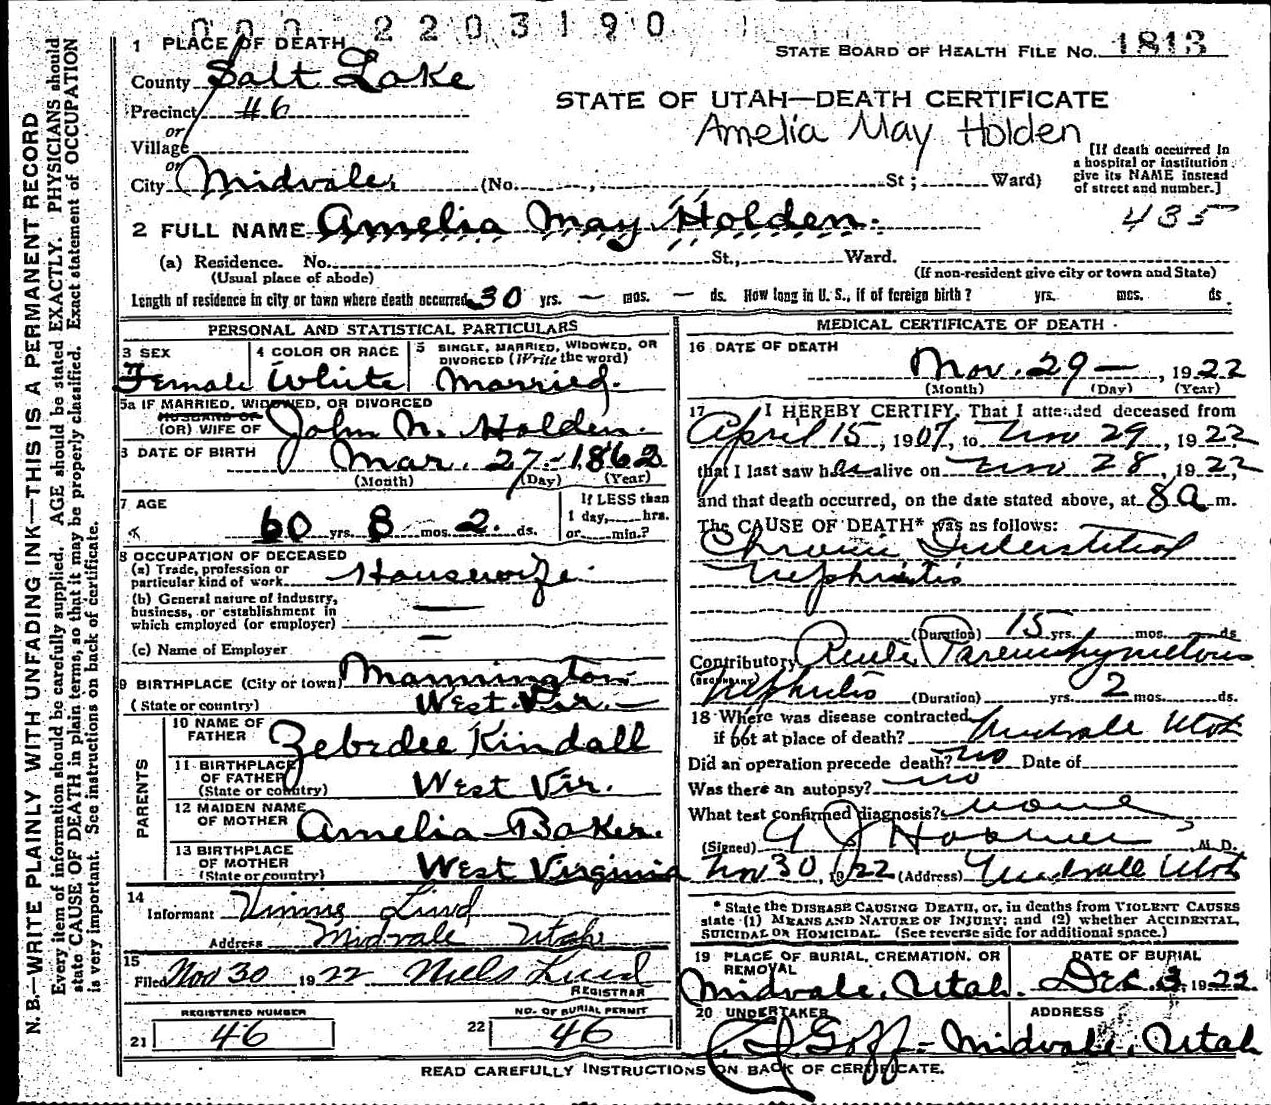 000 2203190
1 PLACE OF DEATH
STATE BOARD OF HEALTH FILE NO. 1813
County Salt Lake
Precinct #46
STATE OF UTAH—DEATH CERTIFICATE
Amelia May Holden
or
Village
or
City Midvale. (No. , St ; Ward)
[If death occurred in a hospital or institution give its NAME instead of street and number.]
435
2 FULL NAME Amelia May Holden.
(a) Residence. No. St., Ward.
(Usual place of abode) (If non-resident give city or town and State)
Length of residence in city or town where death occurred 30 yrs. — mos. — ds. How long in U. S., if of foreign birth? yrs. mos. ds
PERSONAL AND STATISTICAL PARTICULARS
3 SEX Female
4 COLOR OR RACE White
5 SINGLE, MARRIED, WIDOWED, OR DIVORCED (Write the word) Married.
5a IF MARRIED, WIDOWED, OR DIVORCED
HUSBAND OF
(OR) WIFE OF John N. Holden.
6 DATE OF BIRTH Mar. 27-1862
(Month) (Day) (Year)
7 AGE
60 yrs. 8 mos. 2. ds.
If LESS than 1 day, hrs. or min.?
8 OCCUPATION OF DECEASED
(a) Trade, profession or particular kind of work Housewife
(b) General nature of industry, business, or establishment in which employed (or employer) —
(c) Name of Employer —
9 BIRTHPLACE (City or town) Mannington
(State or country) West. Vir. —
PARENTS
10 NAME OF FATHER Zebedee Kindall
11 BIRTHPLACE OF FATHER (State or country) West Vir.
12 MAIDEN NAME OF MOTHER Amelia Baker.
13 BIRTHPLACE OF MOTHER (State or country) West Virginia
14
Informant Lund
Address Midvale Utah
15
Filed Nov 30 1922 Niels Lund
REGISTRAR
REGISTERED NUMBER
21 46
NO. OF BURIAL PERMIT
22 46
MEDICAL CERTIFICATE OF DEATH
16 DATE OF DEATH
Nov. 29 — , 1922
(Month) (Day) (Year)
17 I HEREBY CERTIFY, That I attended deceased from
April 15, 1907, to Nov 29, 1922
that I last saw her alive on Nov 28, 1922,
and that death occurred, on the date stated above, at 8 a m.
The CAUSE OF DEATH* was as follows:
Chronic Interstitial
Nephritis
(Duration) 15 yrs. mos. ds
Contributory Acute Parenchymetous
(SECONDARY) Nephritis (Duration) yrs. 2 mos. ds.
18 Where was disease contracted
if not at place of death? Midvale Utah
Did an operation precede death? no Date of
Was there an autopsy? no
What test confirmed diagnosis? none
(Signed) M. D.
Nov 30, 1922 (Address) Midvale Utah
* State the DISEASE CAUSING DEATH, or, in deaths from VIOLENT CAUSES
state (1) MEANS AND NATURE OF INJURY; and (2) whether ACCIDENTAL,
SUICIDAL OR HOMICIDAL. (See reverse side for additional space.)
19 PLACE OF BURIAL, CREMATION, OR REMOVAL
Midvale, Utah.
DATE OF BURIAL
Dec. 3, 1922.
20 UNDERTAKER
Goff -
ADDRESS
Midvale, Utah
READ CAREFULLY INSTRUCTIONS ON BACK OF CERTIFICATE.
N. B.—WRITE PLAINLY WITH UNFADING INK—THIS IS A PERMANENT RECORD
Every item of information should be carefully supplied. AGE should be stated EXACTLY. PHYSICIANS should
state CAUSE OF DEATH in plain terms, so that it may be properly classified. Exact statement of OCCUPATION
is very important. See instructions on back of certificate.